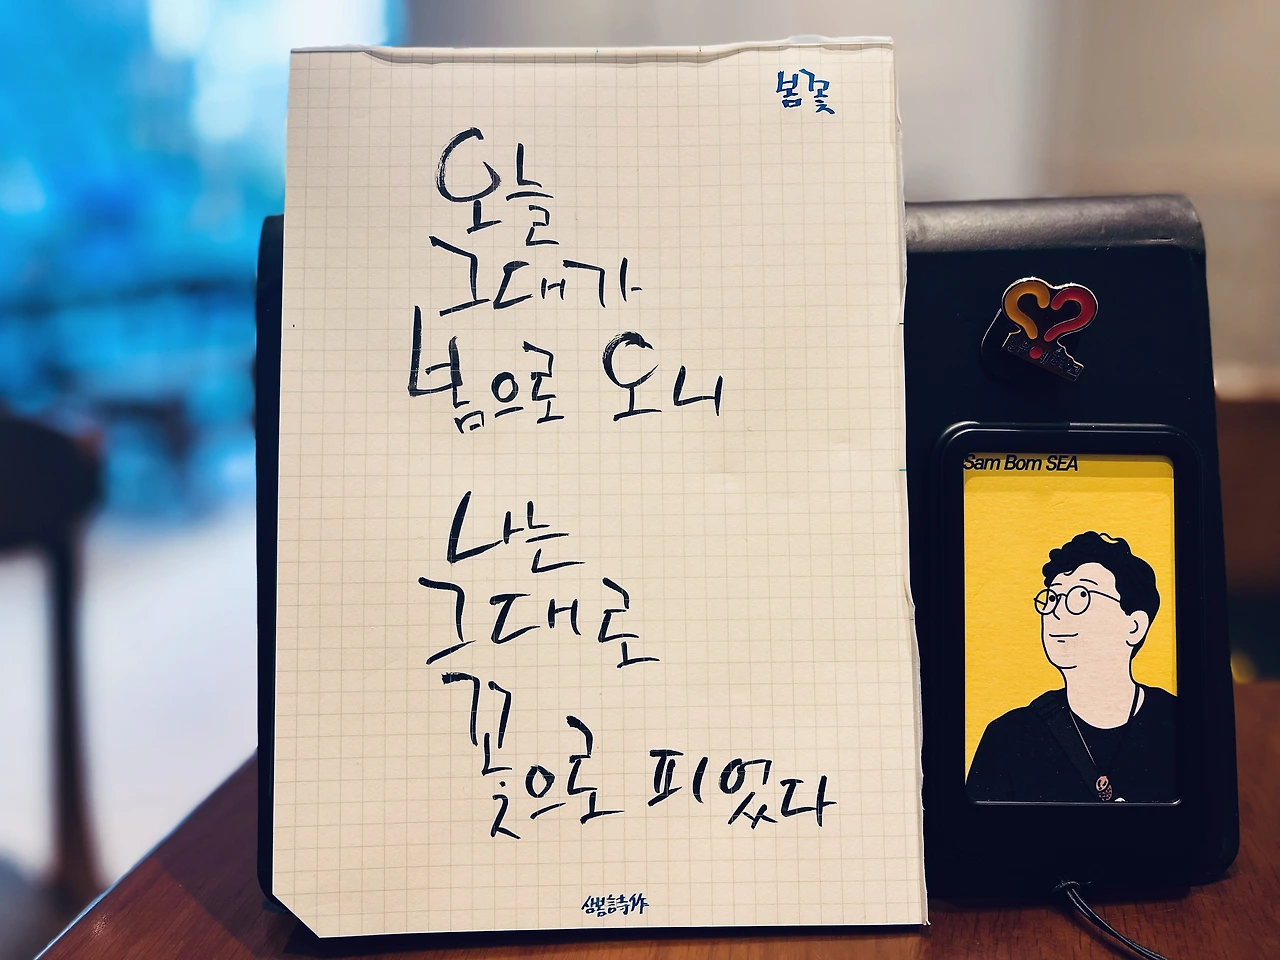 봄꽃
오늘
그대가
봄으로 오니
나는
그대로
꽃으로 피었다
샘봄詩作
Sam Bom SEA